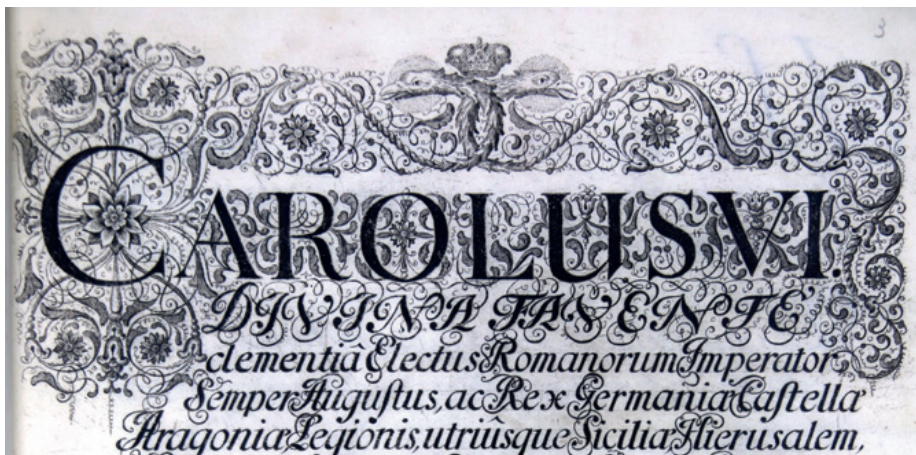 3
CAROLUS VI.
DIVINA FAVENTE
clementiâ Electus Romanorum Imperator
Semper Auguſtus, ac Rex Germaniæ Caſtellæ
Aragoniæ Legionis, utriûsque Siciliæ Hierusalem,